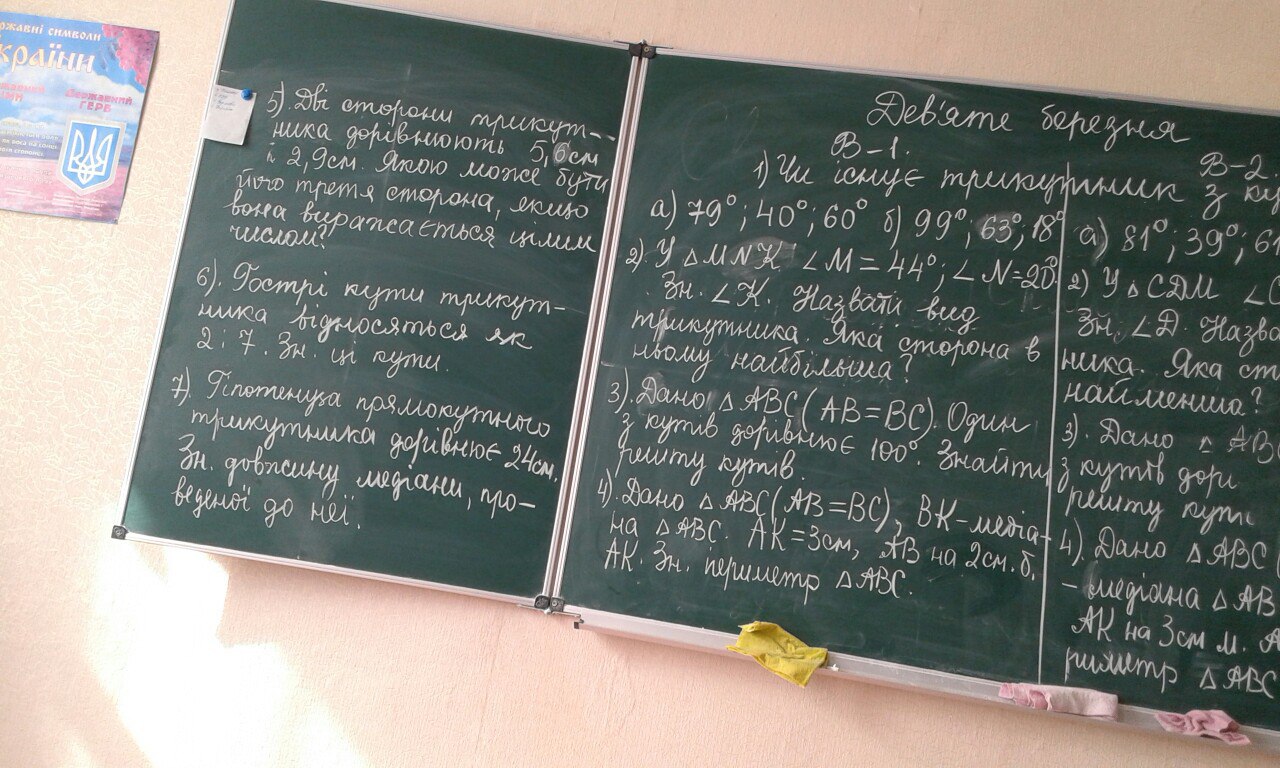 ержавні символи
країни
Державний
ГЕРБ
5). Дві сторони трикут-
ника дорівнюють 5,6см
і 2,9см. Якою може бути
його третя сторона, якщо
вона виражається цілим
числом?
6). Гострі кути трикут-
ника відносяться як
2 : 7. Зн. ці кути.
7). Гіпотенуза прямокутного
трикутника дорівнює 24см.
Зн. довжину медіани, про-
веденої до неї.
Дев'яте березня
В-1.
1) Чи існує трикутник з ку
а) 79°; 40°; 60° б) 99°; 63°; 18°
2). У △MNK ∠M = 44°; ∠N = 20°.
Зн. ∠K. Назвати вид
трикутника. Яка сторона в
ньому найбільша?
3). Дано △ABC (AB = BC). Один
з кутів дорівнює 100°. Знайти
решту кутів.
4). Дано △ABC (AB = BC), BK-медіа-
на △ABC. AK = 3см, AB на 2см. б.
AK. Зн. периметр △ABC.
В-2.
а) 81°; 39°; 6
2) У △CDM ∠
Зн. ∠D. Назва
ника. Яка ст
найменша?
3). Дано △ AB
з кутів дорі
решту куті
4). Дано △ABC (
- медіана △AB
AK на 3см м. A
риметр △ABC